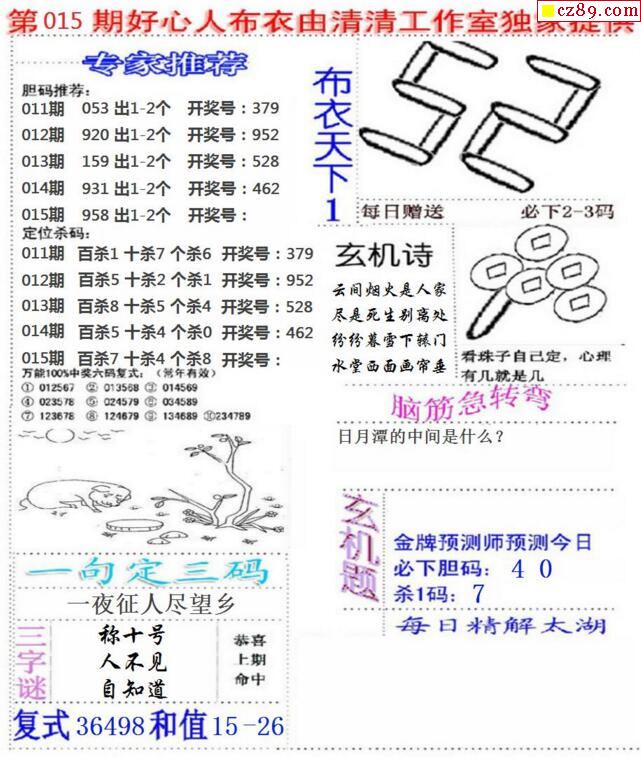 第 015 期好心人布衣由清清工作室独家提供
cz89.com
专家推荐
胆码推荐:
011期 053 出1-2个 开奖号:379
012期 920 出1-2个 开奖号:952
013期 159 出1-2个 开奖号:528
014期 931 出1-2个 开奖号:462
015期 958 出1-2个 开奖号:
定位杀码:
011期 百杀1 十杀7 个杀6 开奖号:379
012期 百杀5 十杀2 个杀1 开奖号:952
013期 百杀8 十杀5 个杀4 开奖号:528
014期 百杀5 十杀4 个杀0 开奖号:462
015期 百杀7 十杀4 个杀8 开奖号:
万能100%中奖六码复式:(常年有效)
① 012567 ② 013568 ③ 014569
④ 023578 ⑤ 024579 ⑥ 034589
⑦ 123678 ⑧ 124679 ⑨ 134689 ⑩234789
一句定三码
一夜征人尽望乡
三字谜
称十号
人不见
自知道
恭喜
上期
命中
复式 36498 和值 15-26
布衣天下1
52
每日赠送 必下2-3码
玄机诗
云间烟火是人家
尽是死生别离处
纷纷暮雪下辕门
水堂西面画帘垂
看珠子自己定,心理
有几就是几
脑筋急转弯
日月潭的中间是什么?
玄机题
金牌预测师预测今日
必下胆码: 4 0
杀1码: 7
每日精解太湖